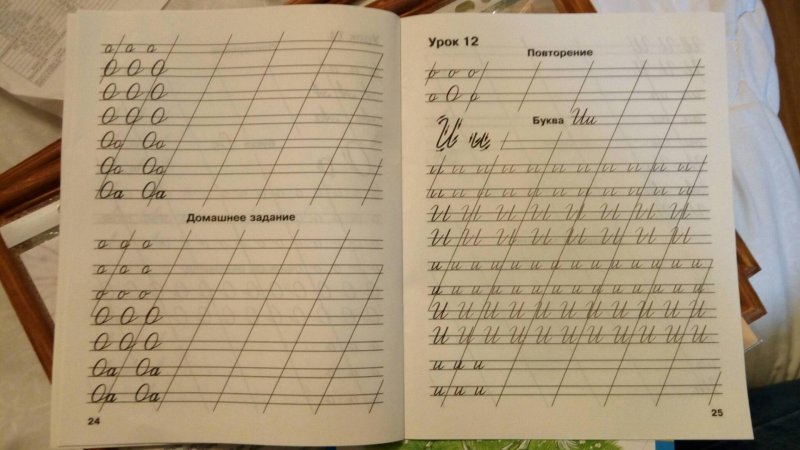 о о о
О О О
О О О
О О О
Оо Оо
Оо Оо
Оа Оа
Домашнее задание
о о о
о о о
о о о
О О О
О О О
Оа Оа
Оа Оа
24
Урок 12
Повторение
о о о
о О о
Буква Ии
И и
и и и и и и и и и и и и
и и и и и и и и и и и и
И И И И И И И И И
И И И И И И И И И
и и и и и и и и и и и и и и
и и и и и и и и и и и и и и
И И И И И И И И И И И
И И И И И И И И И И И
и и и
и и и
25